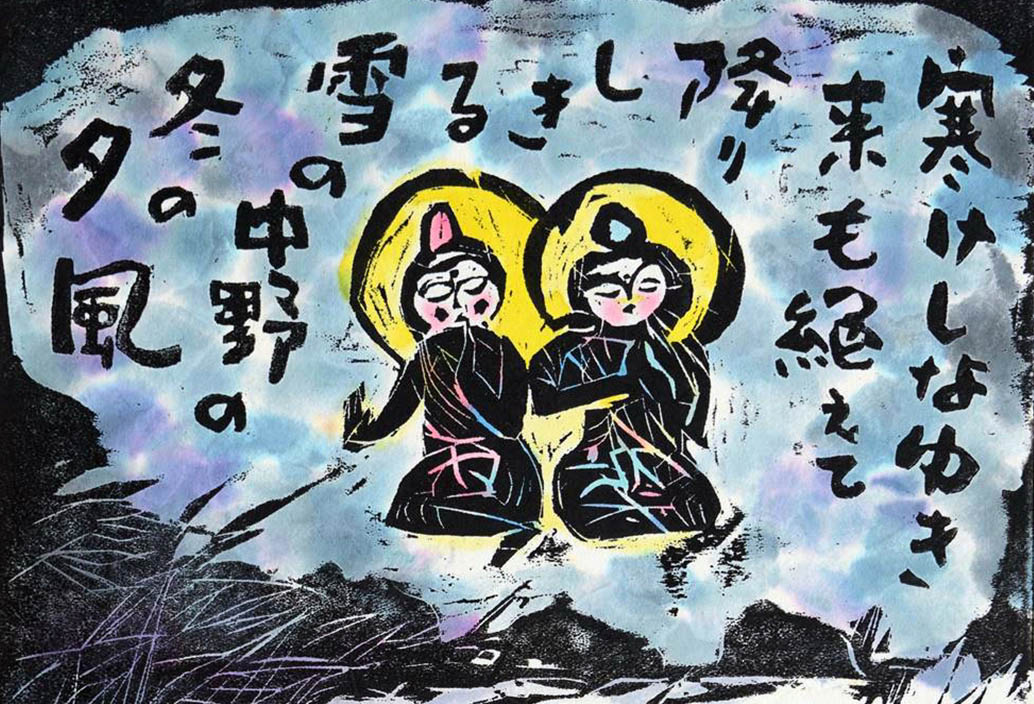 寒けしなゆき
来も絶えて
降り
しきる
雪の
中野の
冬の
夕風